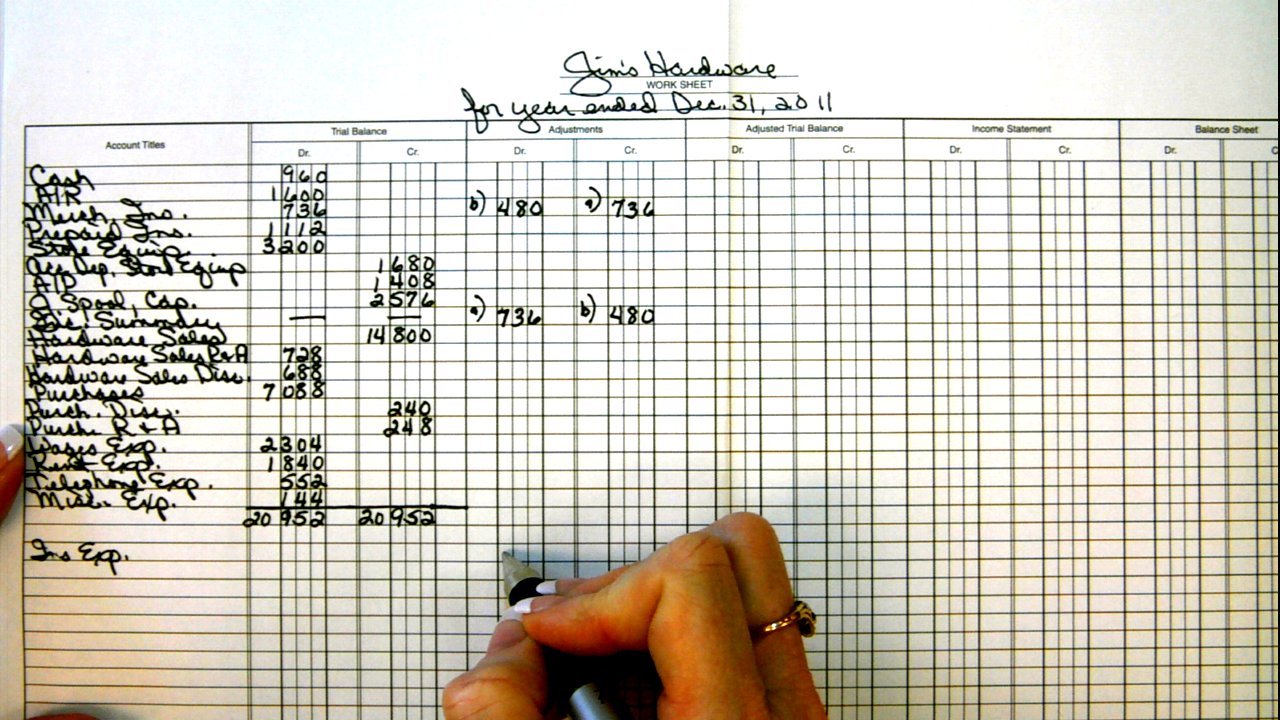 Jim's Hardware
WORK SHEET
for year ended Dec. 31, 2011
Account Titles Trial Balance Adjustments Adjusted Trial Balance Income Statement Balance Sheet
Dr. Cr. Dr. Cr. Dr. Cr. Dr. Cr. Dr. C
Cash 960
A/R 1600
Merch. Inv. 736 b) 480 a) 736
Prepaid Ins. 1112
Store Equip. 3200
Acc Dep, Store Equip 1680
A/P 1408
J. Spool, Cap. 2576
Inc. Summary — — a) 736 b) 480
Hardware Sales 14800
Hardware Sales R+A 728
Hardware Sales Disc. 688
Purchases 7088
Purch. Disc. 240
Purch. R+A 248
Wages Exp. 2304
Rent Exp. 1840
Telephone Exp. 552
Misc. Exp. 144
20952 20952
Ins Exp.